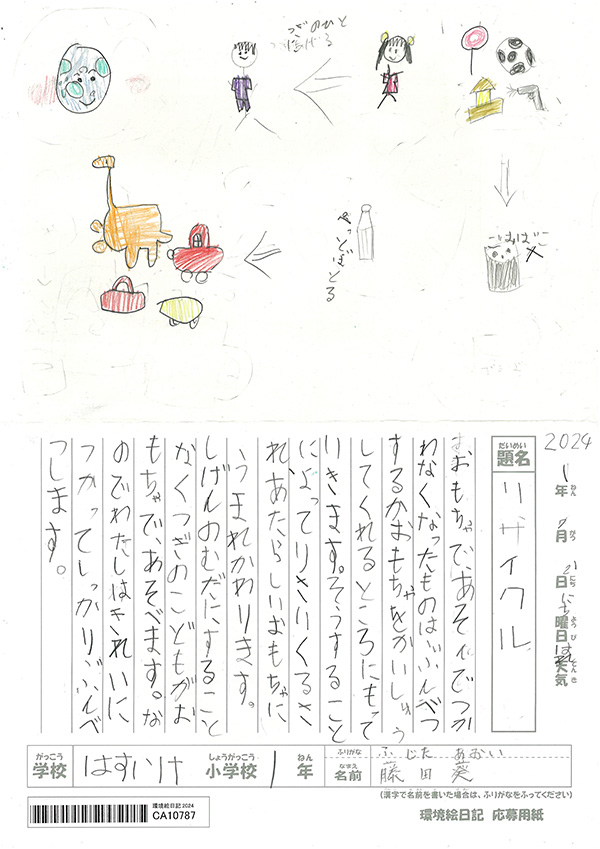 つぎのひと
つなげる
ごみばこ
ぺっとぼとる
2024
1年 ねん
7月 がつ
21日 にち
にち曜日 ようび
はれ 天気 てんき
だいめい
題名
リサイクル
おもちゃで、あそんでつか
わなくなったものは、ぶんべつ
するかおもちゃをかいしゅう
してくれるところにもって
いきます。そうすること
によってりさいくるさ
れ、あたらしいおもちゃに
うまれかわります。
しげんのむだにすること
なくつぎのこどもがお
もちゃで、あそべます。な
のでわたしはきれいに
つかってしっかりぶんべ
つします。
がっこう
学校
はすいけ
しょうがっこう
小学校
1
ねん
年
ふりがな
ふじた あおい
なまえ
名前
藤田葵
(漢字で名前を書いた場合は、ふりがなをふってください)
環境絵日記 2024
CA10787
環境絵日記 応募用紙